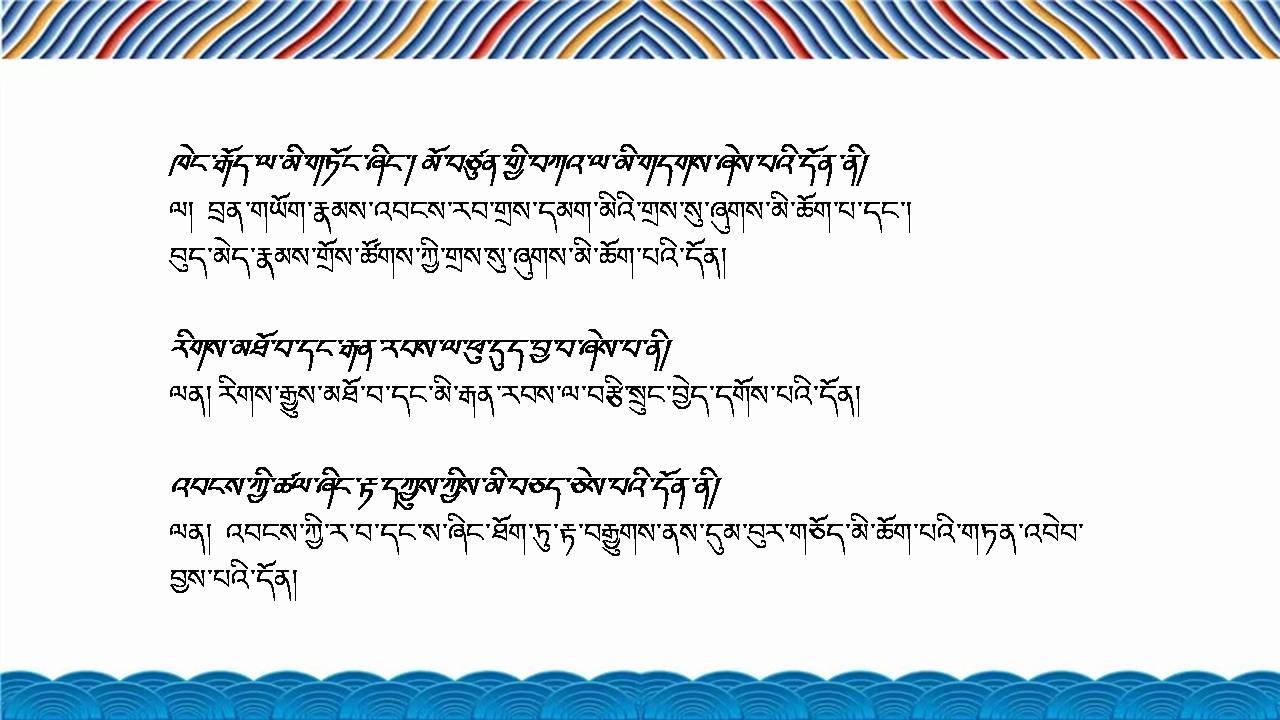 ཁེང་རྒོད་ལ་མི་གཏོང་ཞིང་། མོ་བཙུན་གྱི་བཀའ་ལ་མི་གདགས་ཞེས་པའི་དོན་ནི།
ལ། བྲན་གཡོག་རྣམས་འབངས་རབ་གྲས་དམག་མིའི་གྲས་སུ་ཞུགས་མི་ཆོག་པ་དང་།
བུད་མེད་རྣམས་གྲོས་ཚོགས་ཀྱི་གྲས་སུ་ཞུགས་མི་ཆོག་པའི་དོན།
རིགས་མཐོ་བ་དང་རྒན་རབས་ལ་ཕུ་དུད་བྱ་བ་ཞེས་པ་ནི།
ལན། རིགས་རྒྱུས་མཐོ་བ་དང་མི་རྒན་རབས་ལ་བརྩི་སྲུང་བྱེད་དགོས་པའི་དོན།
འབངས་ཀྱི་ཚལ་ཞིང་རྟ་དཀྱུས་ཀྱིས་མི་བཅད་ཅེས་པའི་དོན་ནི།
ལན། འབངས་ཀྱི་ར་བ་དང་ས་ཞིང་ཐོག་ཏུ་རྟ་བརྒྱུགས་ནས་དུམ་བུར་གཅོད་མི་ཆོག་པའི་གཏན་འབེབ་
བྱས་པའི་དོན།